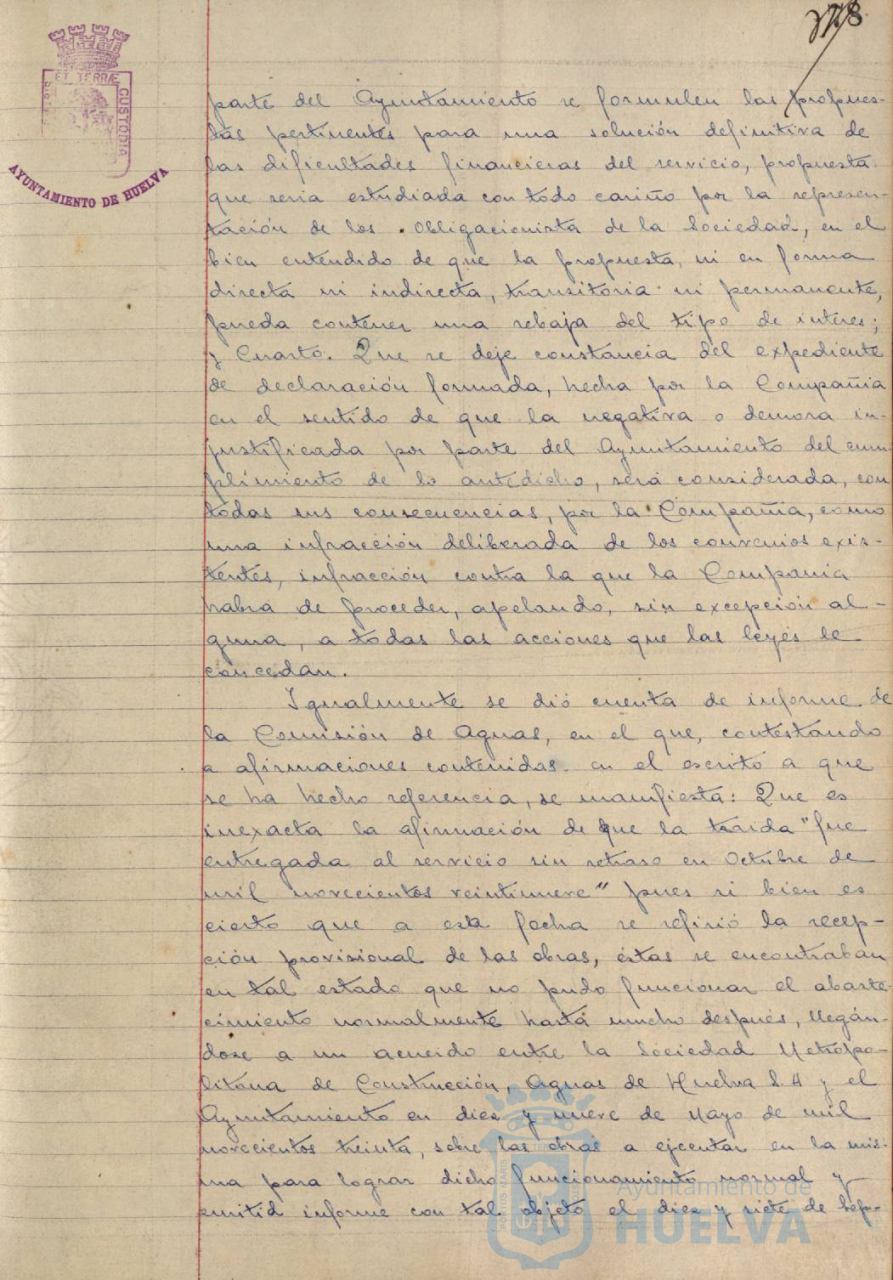 178
ET TERRÆ
CUSTODIA
AYUNTAMIENTO DE HUELVA
parte del Ayuntamiento se formulen las propues-
tas pertinentes para una solución definitiva de
las dificultades financieras del servicio, propuesta
que seria estudiada con todo cariño por la represen-
tación de los Obligacionista de la Sociedad, en el
bien entendido de que la propuesta, ni en forma
directa ni indirecta, transitoria ni permanente,
pueda contener una rebaja del tipo de interes;
y Cuarto. Que se deje constancia del expediente
de declaración formada, hecha por la Compañia
en el sentido de que la negativa o demora in-
justificada por parte del Ayuntamiento del cum
plimiento de lo antedicho, será considerada, con
todas sus consecuencias, por la Compañia, como
una infracción deliberada de los convenios exis-
tentes, infracción contra la que la Compania
habra de proceder, apelando, sin excepción al-
guna, a todas las acciones que las leyes le
concedan.
Igualmente se dió cuenta de informe de
la Comisión de Aguas, en el que, contestando
a afirmaciones contenidas en el escrito a que
se ha hecho referencia, se manifiesta: Que es
inexacta la afirmación de que la traida "fue
entregada al servicio sin retraso en Octubre de
mil novecientos veintinueve" pues si bien es
cierto que a esta fecha se refirió la recep-
ción provisional de las obras, éstas se encontraban
en tal estado que no pudo funcionar el abaste-
cimiento normalmente hasta mucho después, llegán-
dose a un acuerdo entre la Sociedad Metropo-
litana de Construcción, Aguas de Huelva S.A y el
Ayuntamiento en diez y nueve de Mayo de mil
novecientos treinta, sobre las obras a ejecutar en la mis-
ma para lograr dicho funcionamiento normal y
emitid informe con tal objeto el diez y siete de Sep-
Ayuntamiento de
HUELVA